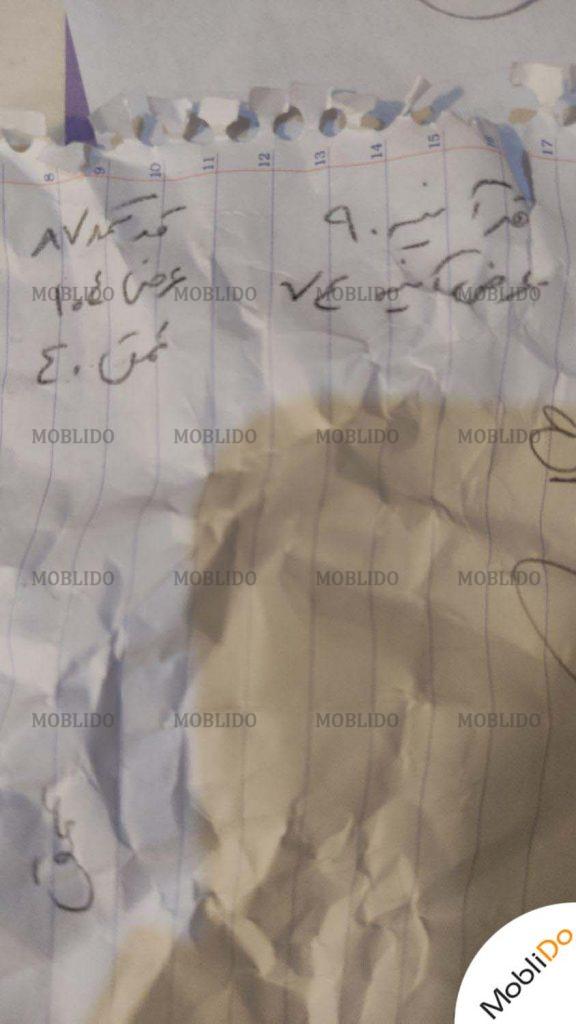 8 9 10 11 12 13 14 15 16 17
قد آینه ۹۰
عرض آینه ۷۴
قد کمد ۸۷
عرض ۱۰۴
عمق ۴۰
MOBLIDO MOBLIDO MOBLIDO MOBLIDO
MOBLIDO MOBLIDO MOBLIDO MOBLIDO
MOBLIDO MOBLIDO MOBLIDO MOBLIDO
MOBLIDO MOBLIDO MOBLIDO MOBLIDO
MobliDo